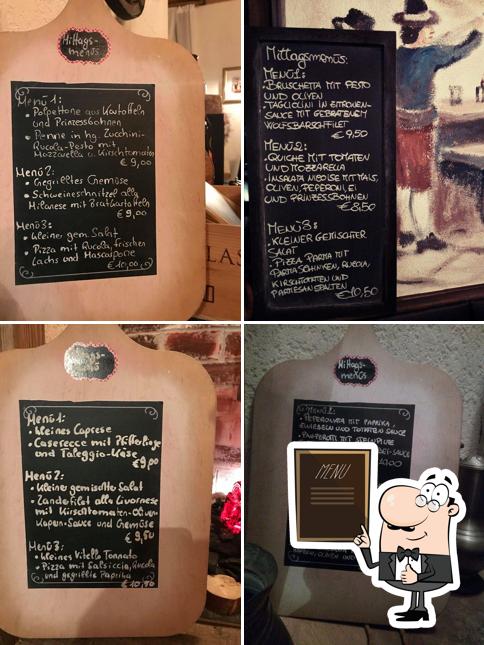 Mittags-
menüs
Menü 1:
• Polpettone aus Kartoffeln
und Prinzessbohnen
• Penne in hg. Zucchini-
Rucola-Pesto mit
Mozzarella u. Kirschtomaten
€ 9,00
Menü 2:
• Gegrilltes Gemüse
• Schweineschnitzel alla
Milanese mit Bratkartoffeln
€ 9,00
Menü 3:
• Kleiner gem. Salat
• Pizza mit Rucola, frischen
Lachs und Mascarpone
€ 10,00
LAS
Mittagsmenüs:
MENÜ 1:
• BRUSCHETTA MIT PESTO
UND OLIVEN
• TAGLIOLINI IN ZITRONEN-
SAUCE MIT GEBRATENEM
WOLFSBARSCHFILET
€ 9,50
MENÜ 2:
• QUICHE MIT TOMATEN
UND MOZZARELLA
• INSALATA NICOISE MIT MAIS,
OLIVEN, PEPERONI, EI
UND PRINZESSBOHNEN
€ 8,50
MENÜ 3:
• KLEINER GEMISCHTER
SALAT
• PIZZA PARMA MIT
PARMASCHINKEN, RUCOLA,
KIRSCHTOMATEN UND
PARMESANSPALTEN
€ 10,50
Mittags-
menüs
Menü 1:
• Kleines Caprese
• Caserecce mit Pfifferlinge
und Taleggio-Käse
€ 9,00
Menü 2:
• Kleiner gemischte Salat
• Zanderfilet alla Livornese
mit Kirschtomaten-Oliven-
Kapern-Sauce und Gemüse
€ 9,50
Menü 3:
• Kleines Vitello Tonnato
• Pizza mit Salsiccia, Rucola
und gegrillte Paprika
€ 10,50
Mittags-
menüs
MENÜ 1:
• PEPERONATA MIT PAPRIKA,
ZWIEBELN UND TOMATEN SAUCE
MIT STEINPILZE
SAUCE
MENU